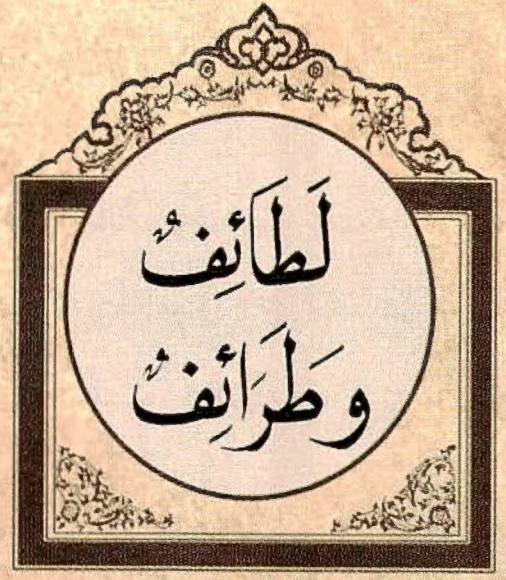 لَطَائِفٌ
وَطَرَائِفٌ